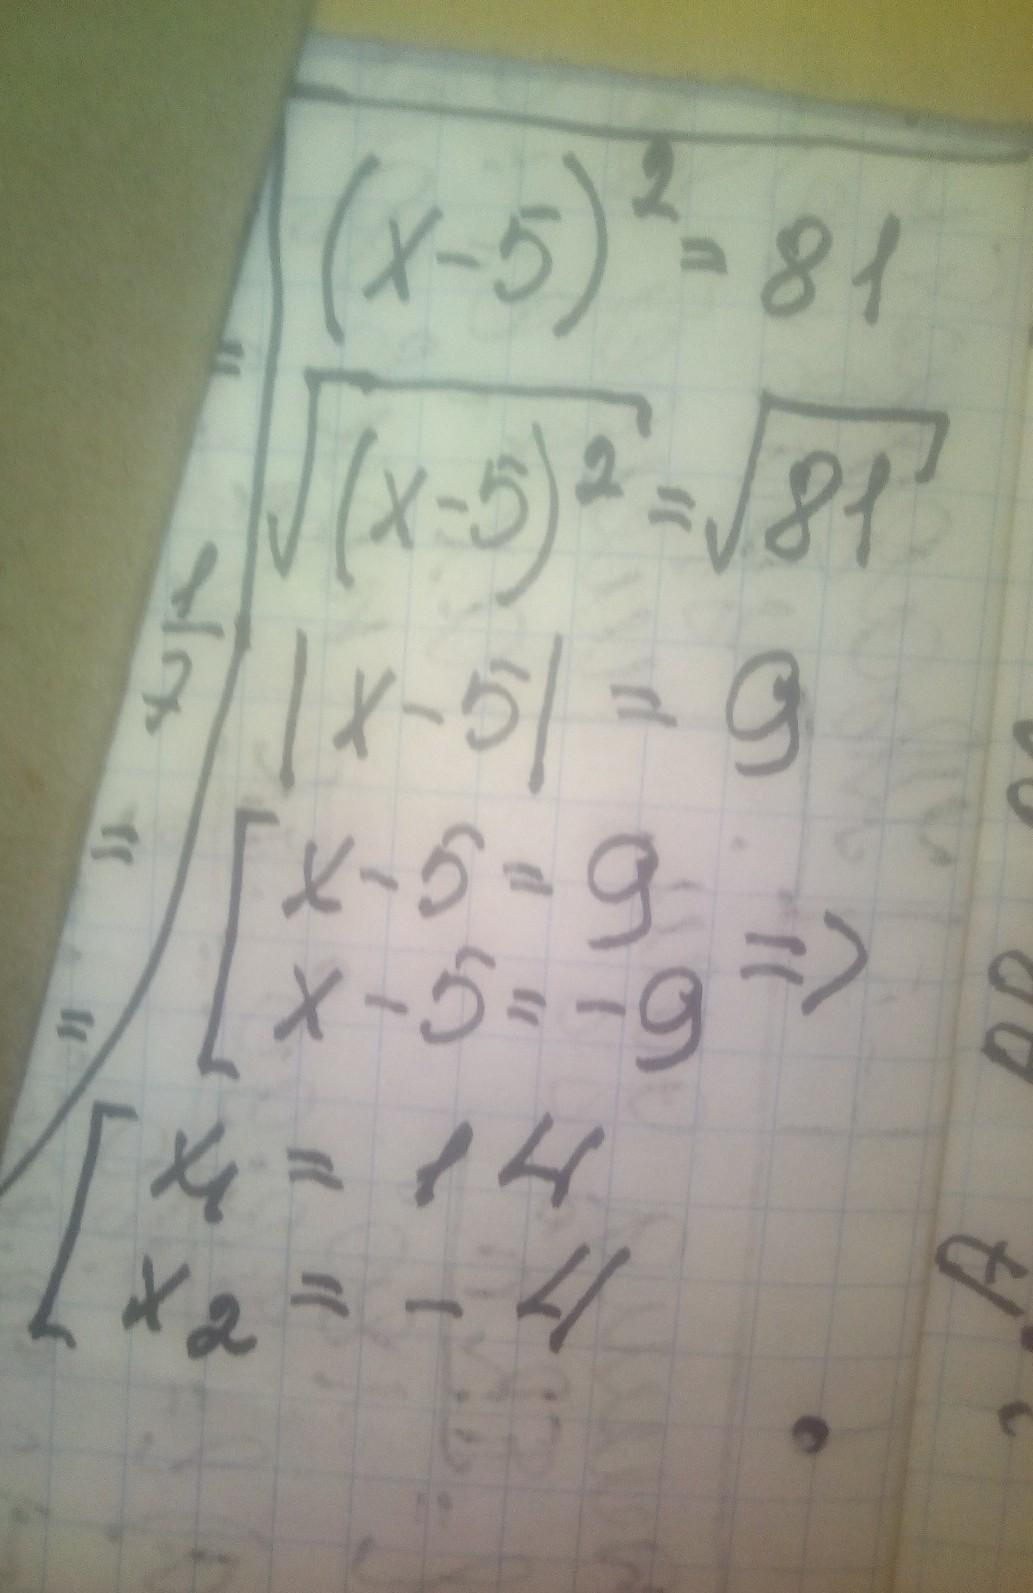 (x-5)² = 81
√(x-5)² = √81
|x-5| = 9
[ x-5 = 9
[ x-5 = -9 =>
[ x₁ = 14
[ x₂ = -4
=
1/2
=
=